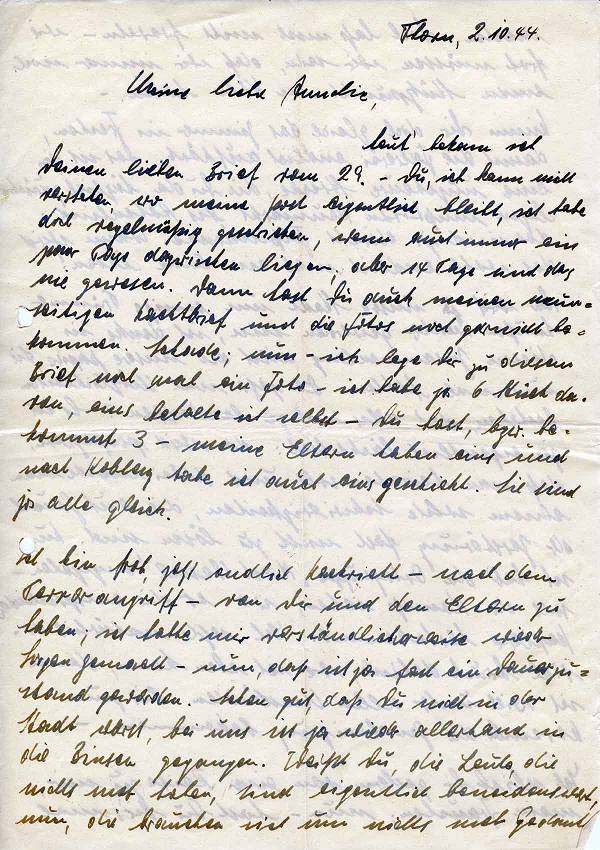 Thorn, 2.10.44.
Meine liebe Annelie,
heut' bekam ich
Deinen lieben Brief vom 29. – Du, ich kann nicht
verstehen, wo meine Post eigentlich bleibt, ich habe
doch regelmäßig geschrieben, wenn auch immer ein
paar Tage dazwischen liegen, aber 14 Tage sind das
nie gewesen. Dann hast Du auch meinen neun-
seitigen Nachtbrief und die Fotos noch garnicht be-
kommen. Schade; nun – ich lege Dir zu diesem
Brief noch mal ein Foto – ich habe ja 6 Stück da-
von, eins behalte ich selbst – Du hast, bzw. be-
kommst 3 – meine Eltern haben eins und
nach Koblenz habe ich auch eins geschickt. Sie sind
ja alle gleich.
Ich bin froh, jetzt endlich Nachricht – nach dem
Terrorangriff – von Dir und den Eltern zu
haben; ich hatte mir verständlicherweise wieder
Sorgen gemacht – nun, das ist ja fast ein Dauerzu-
stand geworden. Schon gut, daß Du nicht in der
Stadt warst, bei uns ist ja wieder allerhand in
die Binsen gegangen. Weißt Du, die Leute, die
nichts mehr haben, sind eigentlich beneidenswert,
nun, die brauchen sich um nichts mehr